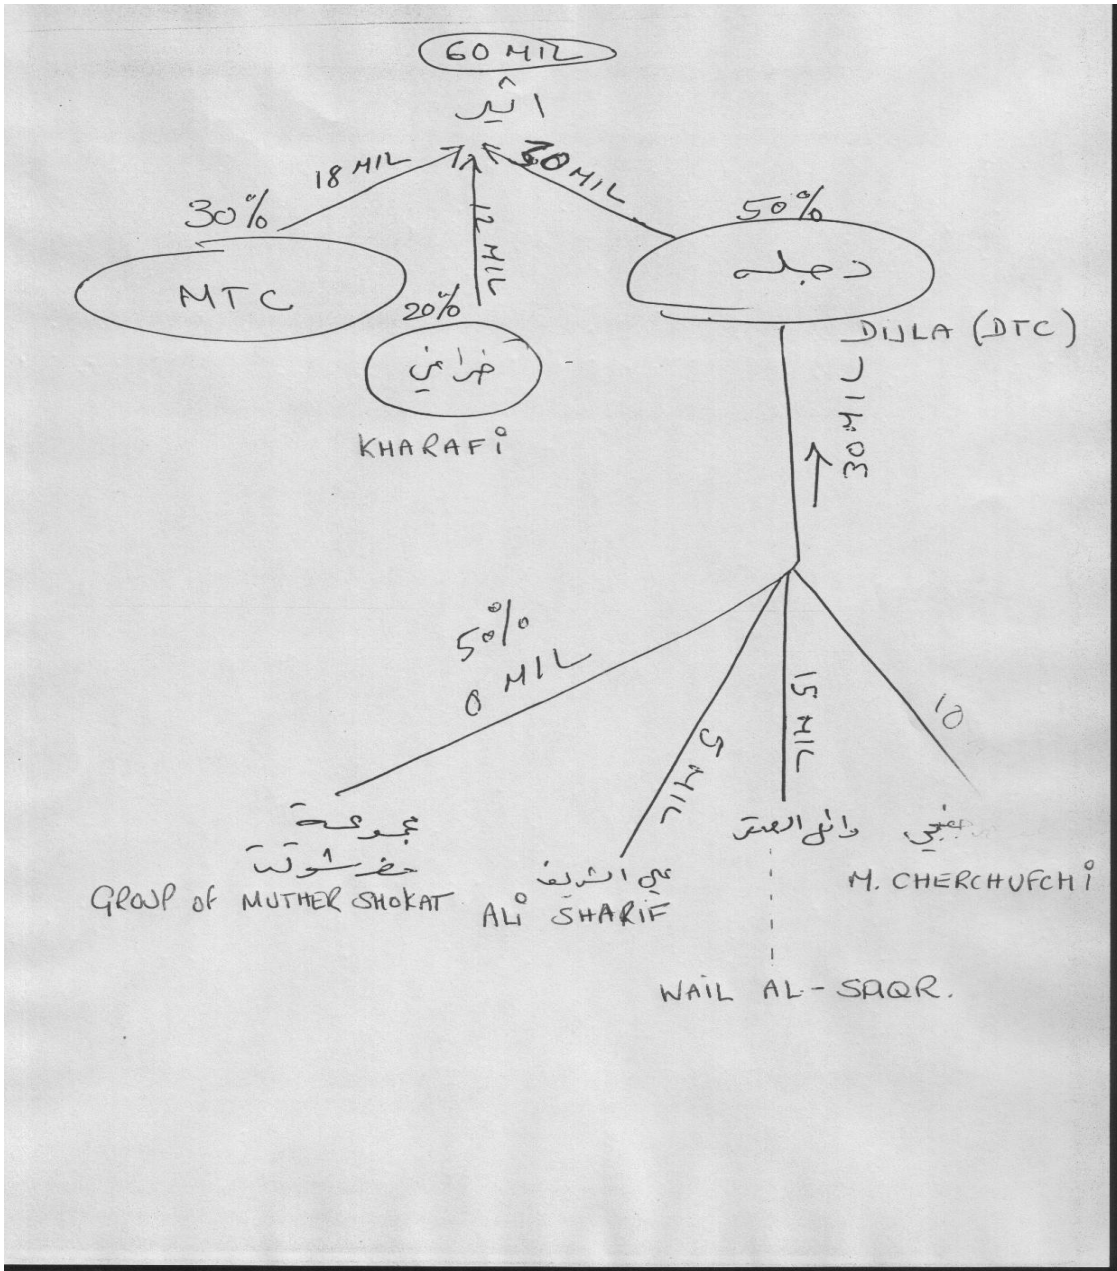 60 MIL
اثير
18 MIL
12 MIL
30 MIL
30%
MTC
20%
خرافي
KHARAFi
50%
دجله
DIJLA (DTC)
30 MIL
50%
0 MIL
5 MIL
15 MIL
10
مجموعة
مضر شوكت
GROUP of MUTHER SHOKAT
علي الشريف
ALi SHARIF
وائل الصقر
WAIL AL-SAQR.
M. CHERCHUFCHi